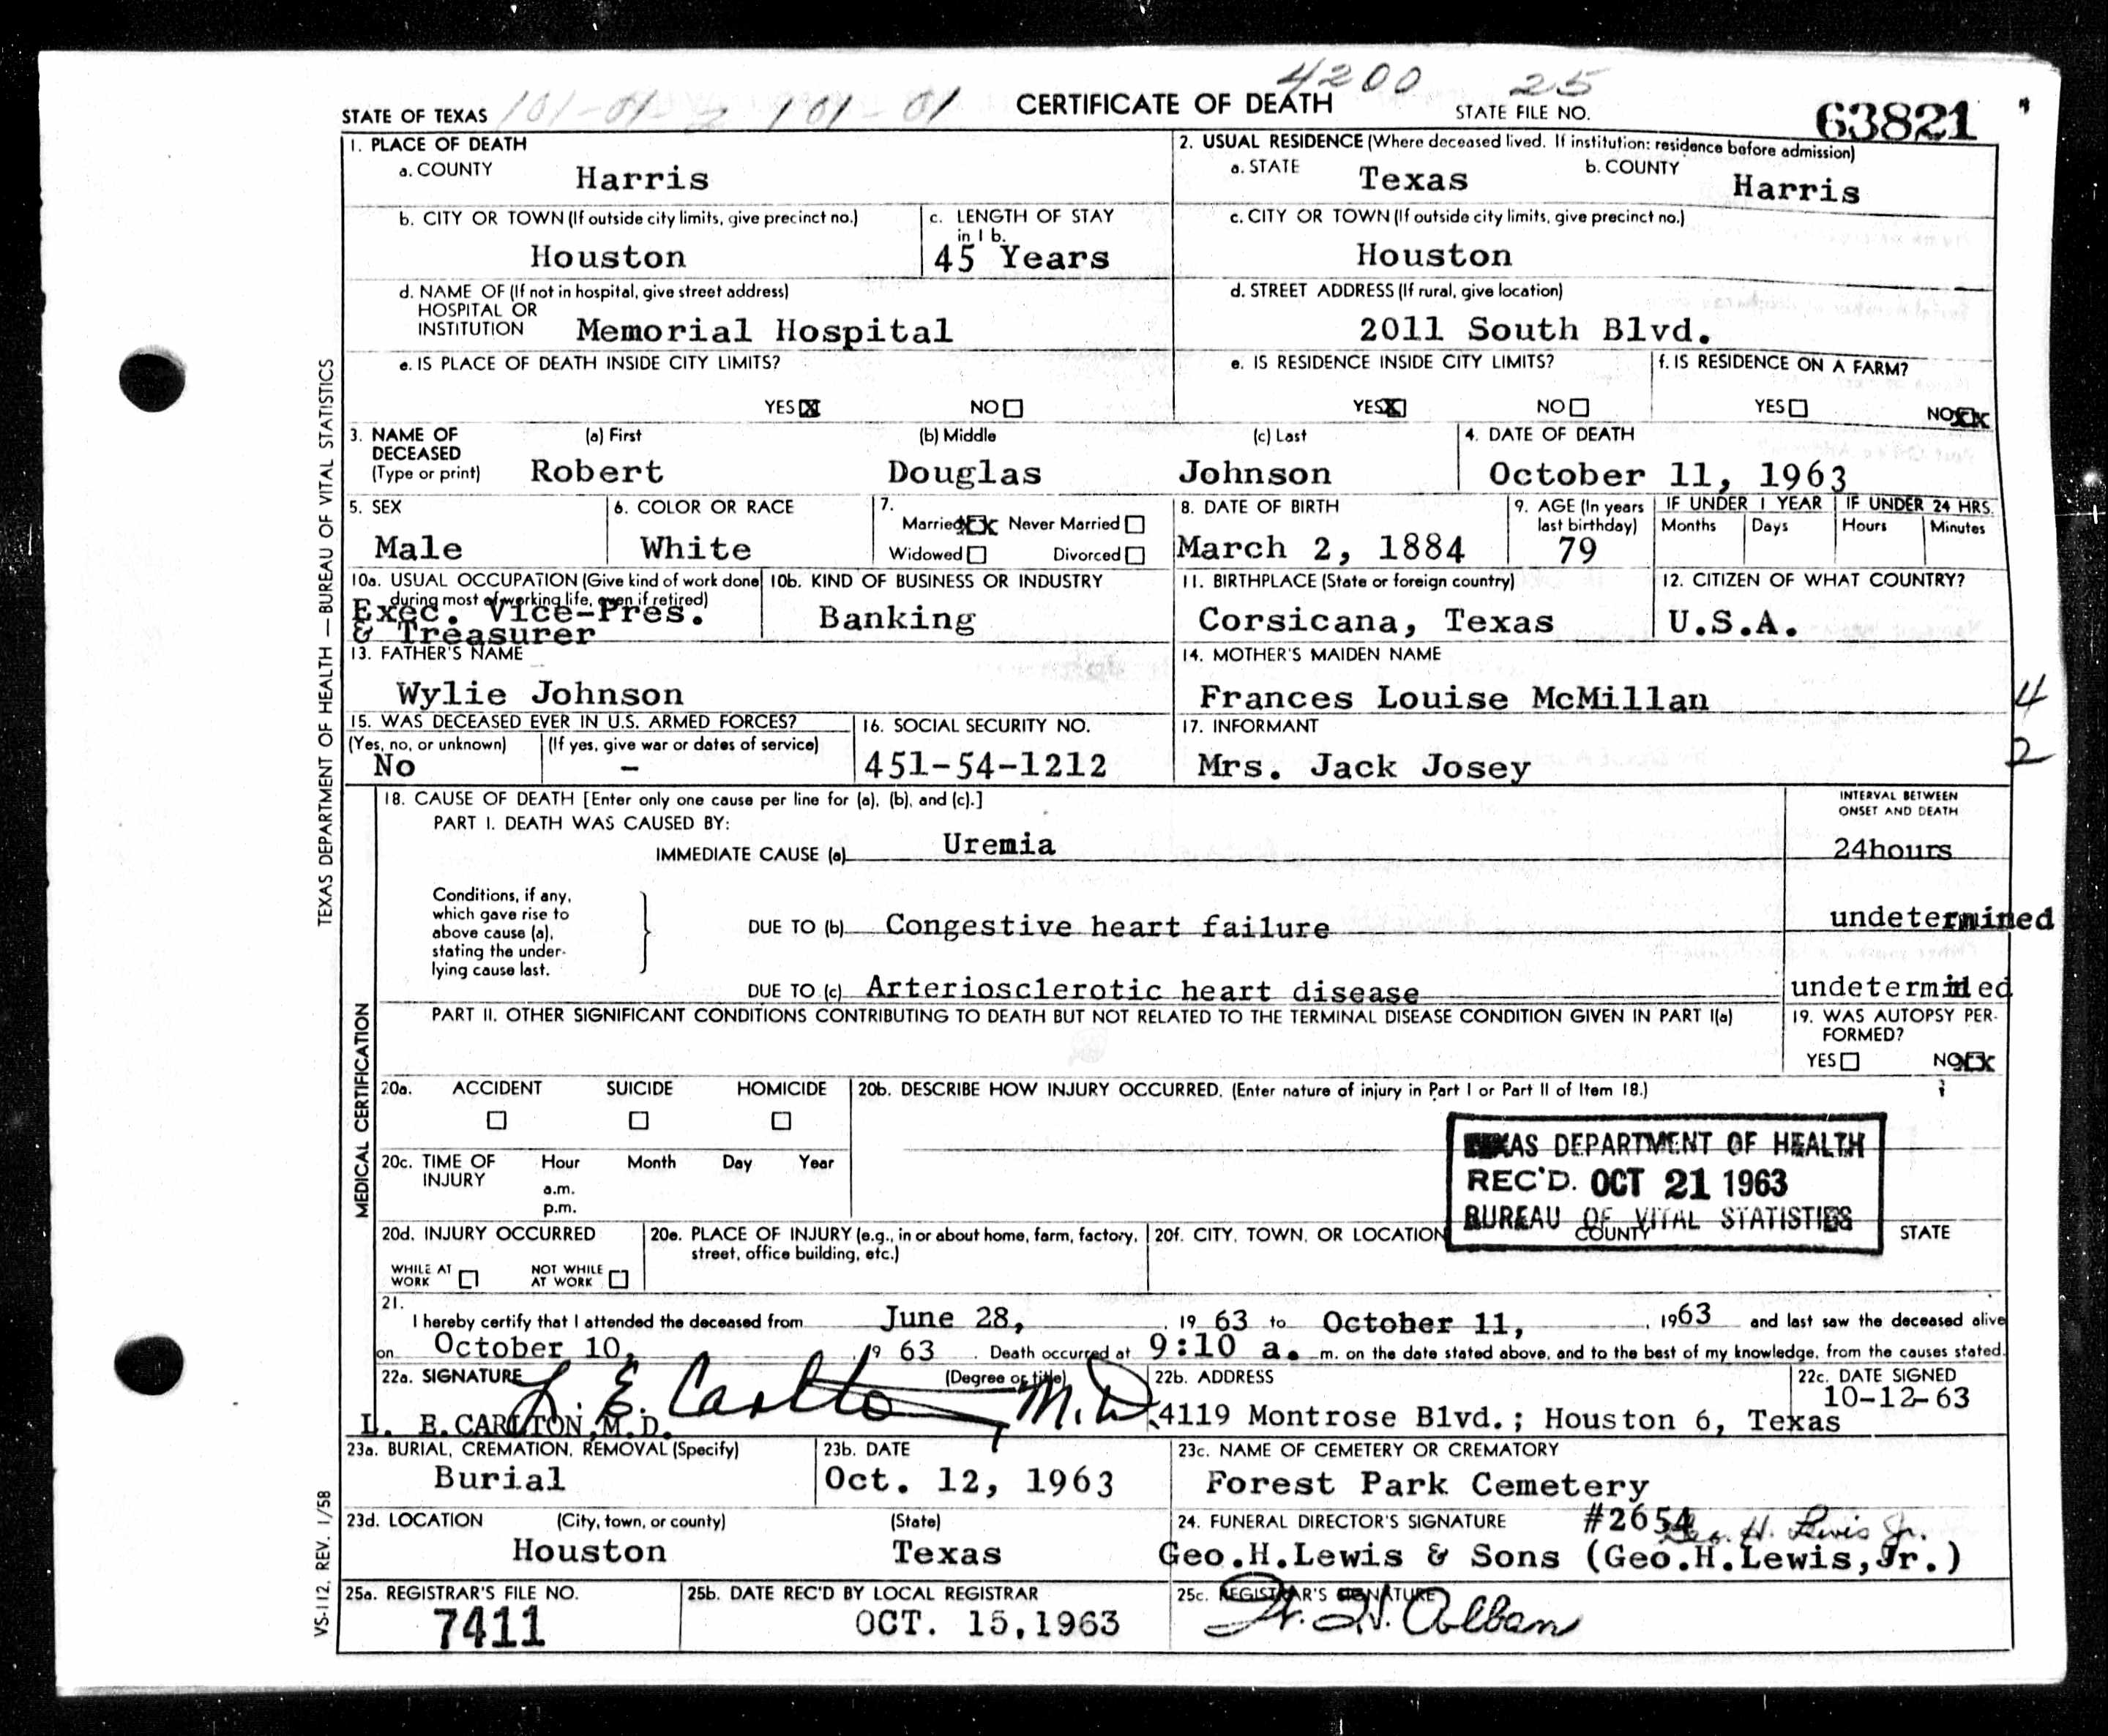 4200 25
STATE OF TEXAS 101-01-2 101-01 CERTIFICATE OF DEATH STATE FILE NO. 63821
1. PLACE OF DEATH
a. COUNTY Harris
2. USUAL RESIDENCE (Where deceased lived. If institution: residence before admission)
a. STATE Texas b. COUNTY Harris
b. CITY OR TOWN (If outside city limits, give precinct no.) Houston
c. LENGTH OF STAY in 1 b. 45 Years
c. CITY OR TOWN (If outside city limits, give precinct no.) Houston
d. NAME OF (If not in hospital, give street address)
HOSPITAL OR
INSTITUTION Memorial Hospital
d. STREET ADDRESS (If rural, give location)
2011 South Blvd.
e. IS PLACE OF DEATH INSIDE CITY LIMITS?
YES X NO
e. IS RESIDENCE INSIDE CITY LIMITS?
YES X NO
f. IS RESIDENCE ON A FARM?
YES NO XX
3. NAME OF DECEASED (Type or print)
(a) First Robert (b) Middle Douglas (c) Last Johnson
4. DATE OF DEATH
October 11, 1963
5. SEX
Male
6. COLOR OR RACE
White
7.
Married XX Never Married
Widowed Divorced
8. DATE OF BIRTH
March 2, 1884
9. AGE (In years last birthday)
79
IF UNDER 1 YEAR
Months Days
IF UNDER 24 HRS.
Hours Minutes
10a. USUAL OCCUPATION (Give kind of work done during most of working life, even if retired)
Exec. Vice-Pres.
& Treasurer
10b. KIND OF BUSINESS OR INDUSTRY
Banking
11. BIRTHPLACE (State or foreign country)
Corsicana, Texas
12. CITIZEN OF WHAT COUNTRY?
U.S.A.
13. FATHER'S NAME
Wylie Johnson
14. MOTHER'S MAIDEN NAME
Frances Louise McMillan
4
2
15. WAS DECEASED EVER IN U.S. ARMED FORCES?
(Yes, no, or unknown) (If yes, give war or dates of service)
No -
16. SOCIAL SECURITY NO.
451-54-1212
17. INFORMANT
Mrs. Jack Josey
18. CAUSE OF DEATH [Enter only one cause per line for (a), (b), and (c).]
INTERVAL BETWEEN
ONSET AND DEATH
PART I. DEATH WAS CAUSED BY:
IMMEDIATE CAUSE (a) Uremia 24hours
Conditions, if any,
which gave rise to
above cause (a),
stating the under-
lying cause last.
DUE TO (b) Congestive heart failure undetermined
DUE TO (c) Arteriosclerotic heart disease undetermined
PART II. OTHER SIGNIFICANT CONDITIONS CONTRIBUTING TO DEATH BUT NOT RELATED TO THE TERMINAL DISEASE CONDITION GIVEN IN PART I(a)
19. WAS AUTOPSY PER-
FORMED?
YES NO XX
20a. ACCIDENT SUICIDE HOMICIDE
20b. DESCRIBE HOW INJURY OCCURRED. (Enter nature of injury in Part I or Part II of Item 18.)
TEXAS DEPARTMENT OF HEALTH
REC'D. OCT 21 1963
BUREAU OF VITAL STATISTICS
20c. TIME OF INJURY Hour Month Day Year
a.m.
p.m.
20d. INJURY OCCURRED
WHILE AT WORK NOT WHILE AT WORK
20e. PLACE OF INJURY (e.g., in or about home, farm, factory, street, office building, etc.)
20f. CITY, TOWN, OR LOCATION COUNTY STATE
21.
I hereby certify that I attended the deceased from June 28, 19 63 to October 11, 1963 and last saw the deceased alive
on October 10, 19 63. Death occurred at 9:10 a. m. on the date stated above, and to the best of my knowledge, from the causes stated.
22a. SIGNATURE (Degree or title)
L. E. Carlton, M.D.
L. E. CARLTON, M.D.
22b. ADDRESS
4119 Montrose Blvd.; Houston 6, Texas
22c. DATE SIGNED
10-12-63
23a. BURIAL, CREMATION, REMOVAL (Specify)
Burial
23b. DATE
Oct. 12, 1963
23c. NAME OF CEMETERY OR CREMATORY
Forest Park Cemetery
23d. LOCATION (City, town, or county) (State)
Houston Texas
24. FUNERAL DIRECTOR'S SIGNATURE #2654 Geo. H. Lewis Jr.
Geo.H.Lewis & Sons (Geo.H.Lewis,Jr.)
25a. REGISTRAR'S FILE NO.
7411
25b. DATE REC'D BY LOCAL REGISTRAR
OCT. 15, 1963
25c. REGISTRAR'S SIGNATURE
TEXAS DEPARTMENT OF HEALTH — BUREAU OF VITAL STATISTICS
MEDICAL CERTIFICATION
VS-112, REV. 1/58